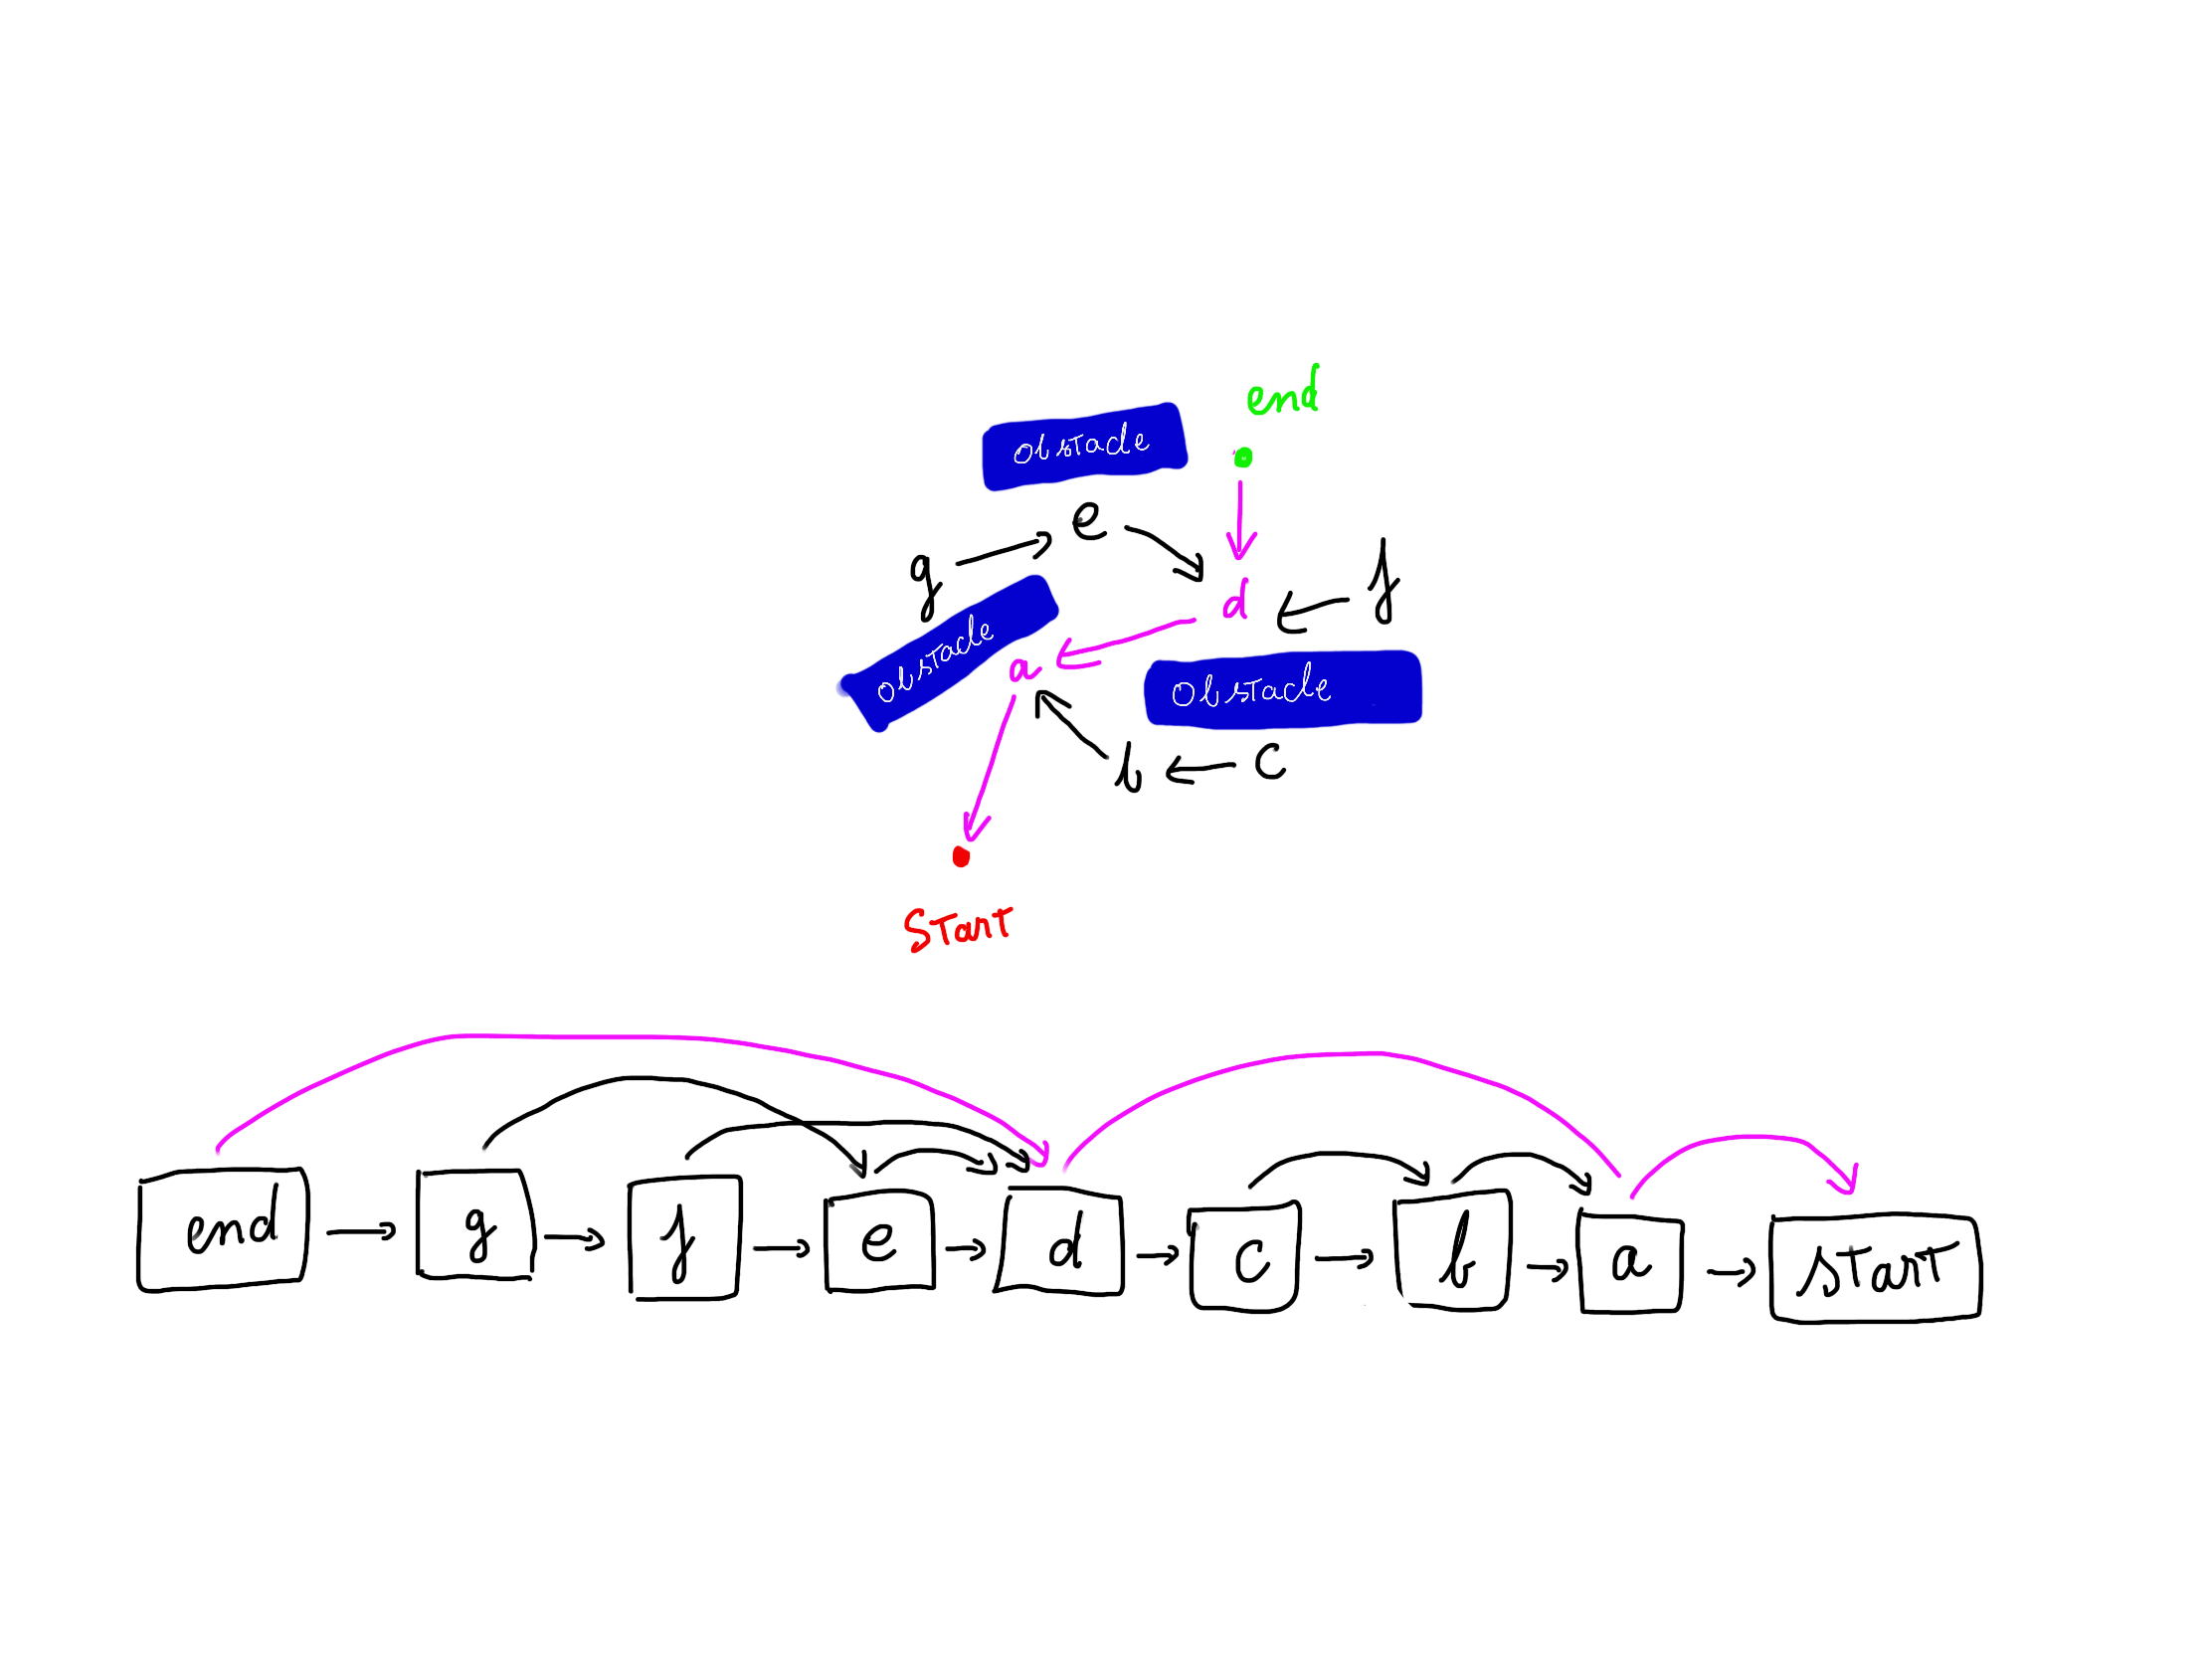 end
Obstacle
e
g
f
d
Obstacle
a
Obstacle
b
c
Start
end g f e d c b a start